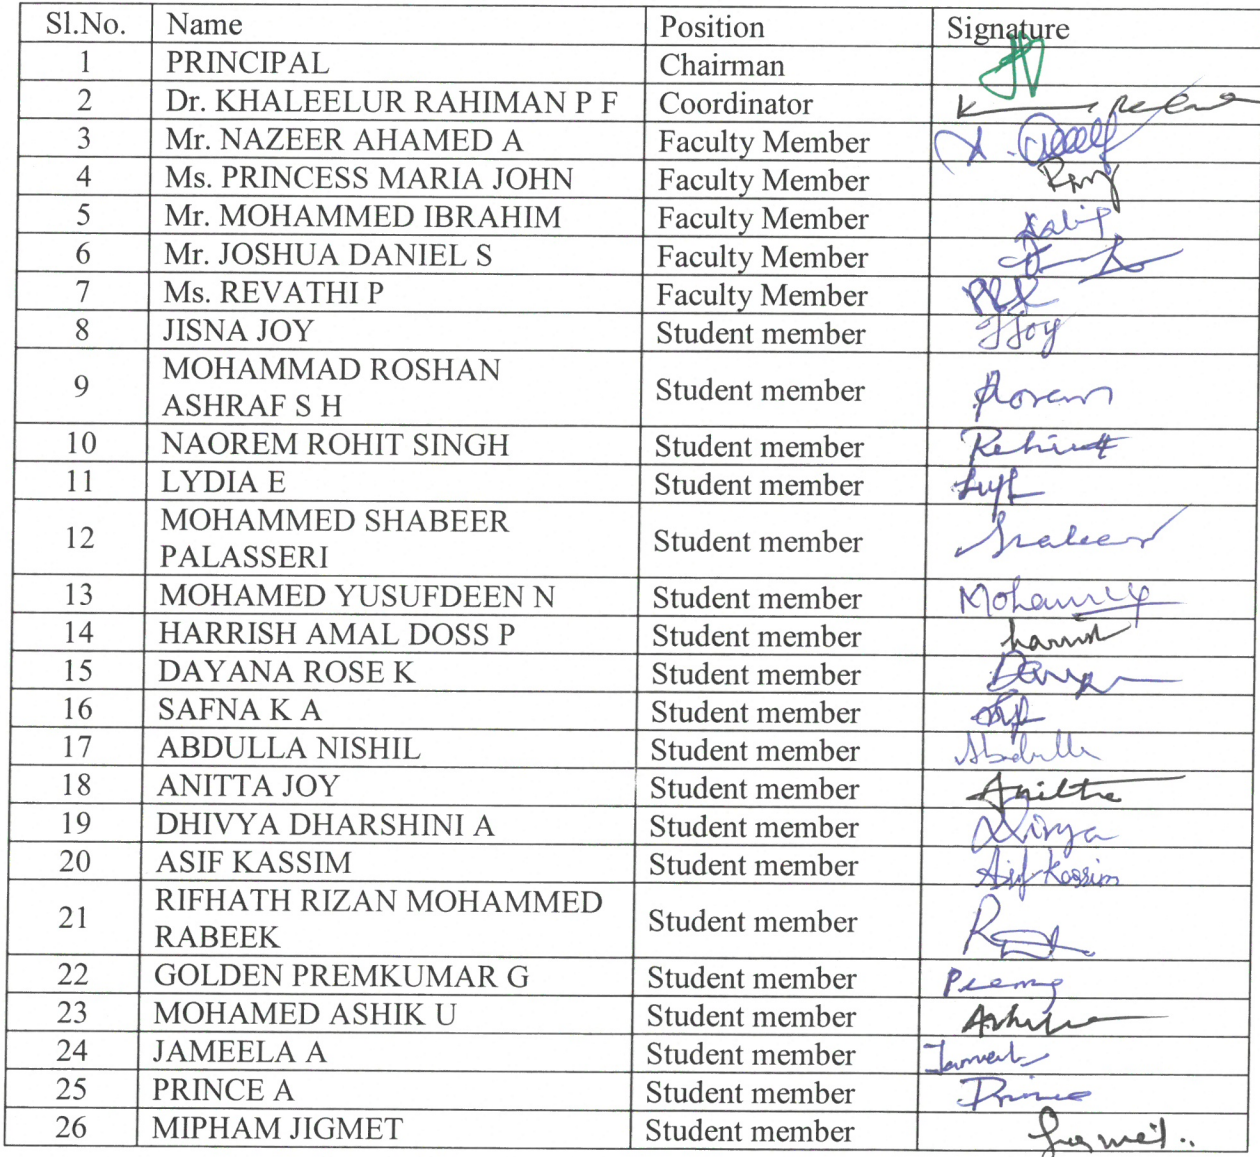 Sl.No. Name Position Signature
1 PRINCIPAL Chairman
2 Dr. KHALEELUR RAHIMAN P F Coordinator
3 Mr. NAZEER AHAMED A Faculty Member
4 Ms. PRINCESS MARIA JOHN Faculty Member
5 Mr. MOHAMMED IBRAHIM Faculty Member
6 Mr. JOSHUA DANIEL S Faculty Member
7 Ms. REVATHI P Faculty Member
8 JISNA JOY Student member JJoy
9 MOHAMMAD ROSHAN
ASHRAF S H Student member
10 NAOREM ROHIT SINGH Student member
11 LYDIA E Student member
12 MOHAMMED SHABEER
PALASSERI Student member
13 MOHAMED YUSUFDEEN N Student member
14 HARRISH AMAL DOSS P Student member
15 DAYANA ROSE K Student member
16 SAFNA K A Student member
17 ABDULLA NISHIL Student member Abdulla
18 ANITTA JOY Student member Anitta
19 DHIVYA DHARSHINI A Student member
20 ASIF KASSIM Student member Asif Kassim
21 RIFHATH RIZAN MOHAMMED
RABEEK Student member
22 GOLDEN PREMKUMAR G Student member
23 MOHAMED ASHIK U Student member
24 JAMEELA A Student member
25 PRINCE A Student member Prince
26 MIPHAM JIGMET Student member